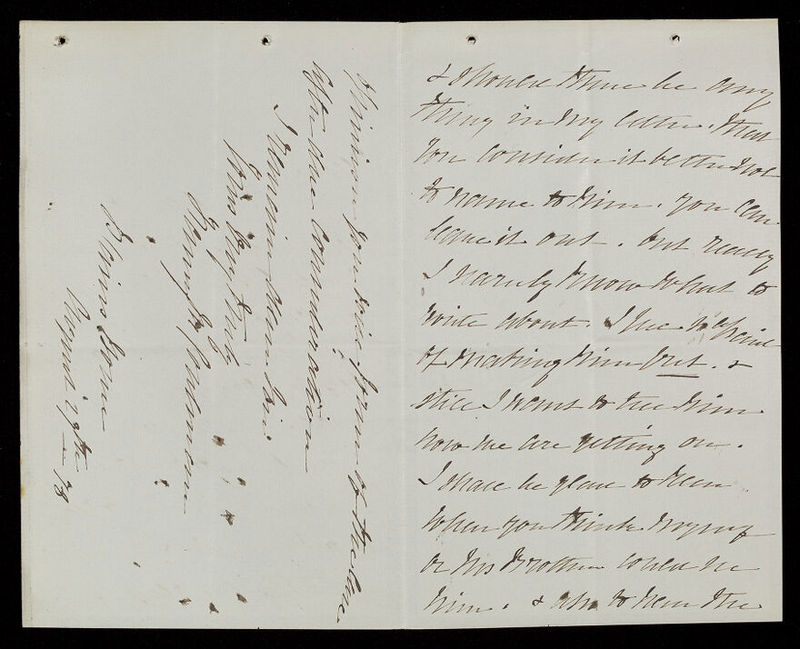 & should there be any
thing in my letter. that
you consider it better not
to name to him. you can
leave it out. but really
I hardly know what to
write about. I am
of making him out. &
still I want to tell him
how we are getting on.
I shall be glad to hear
when you think myself
or his Brother could see
him. & also to hear the
opinion you have form of the case
after due consideration
I remain dear Sir
Yours very truly
August 29th – 78